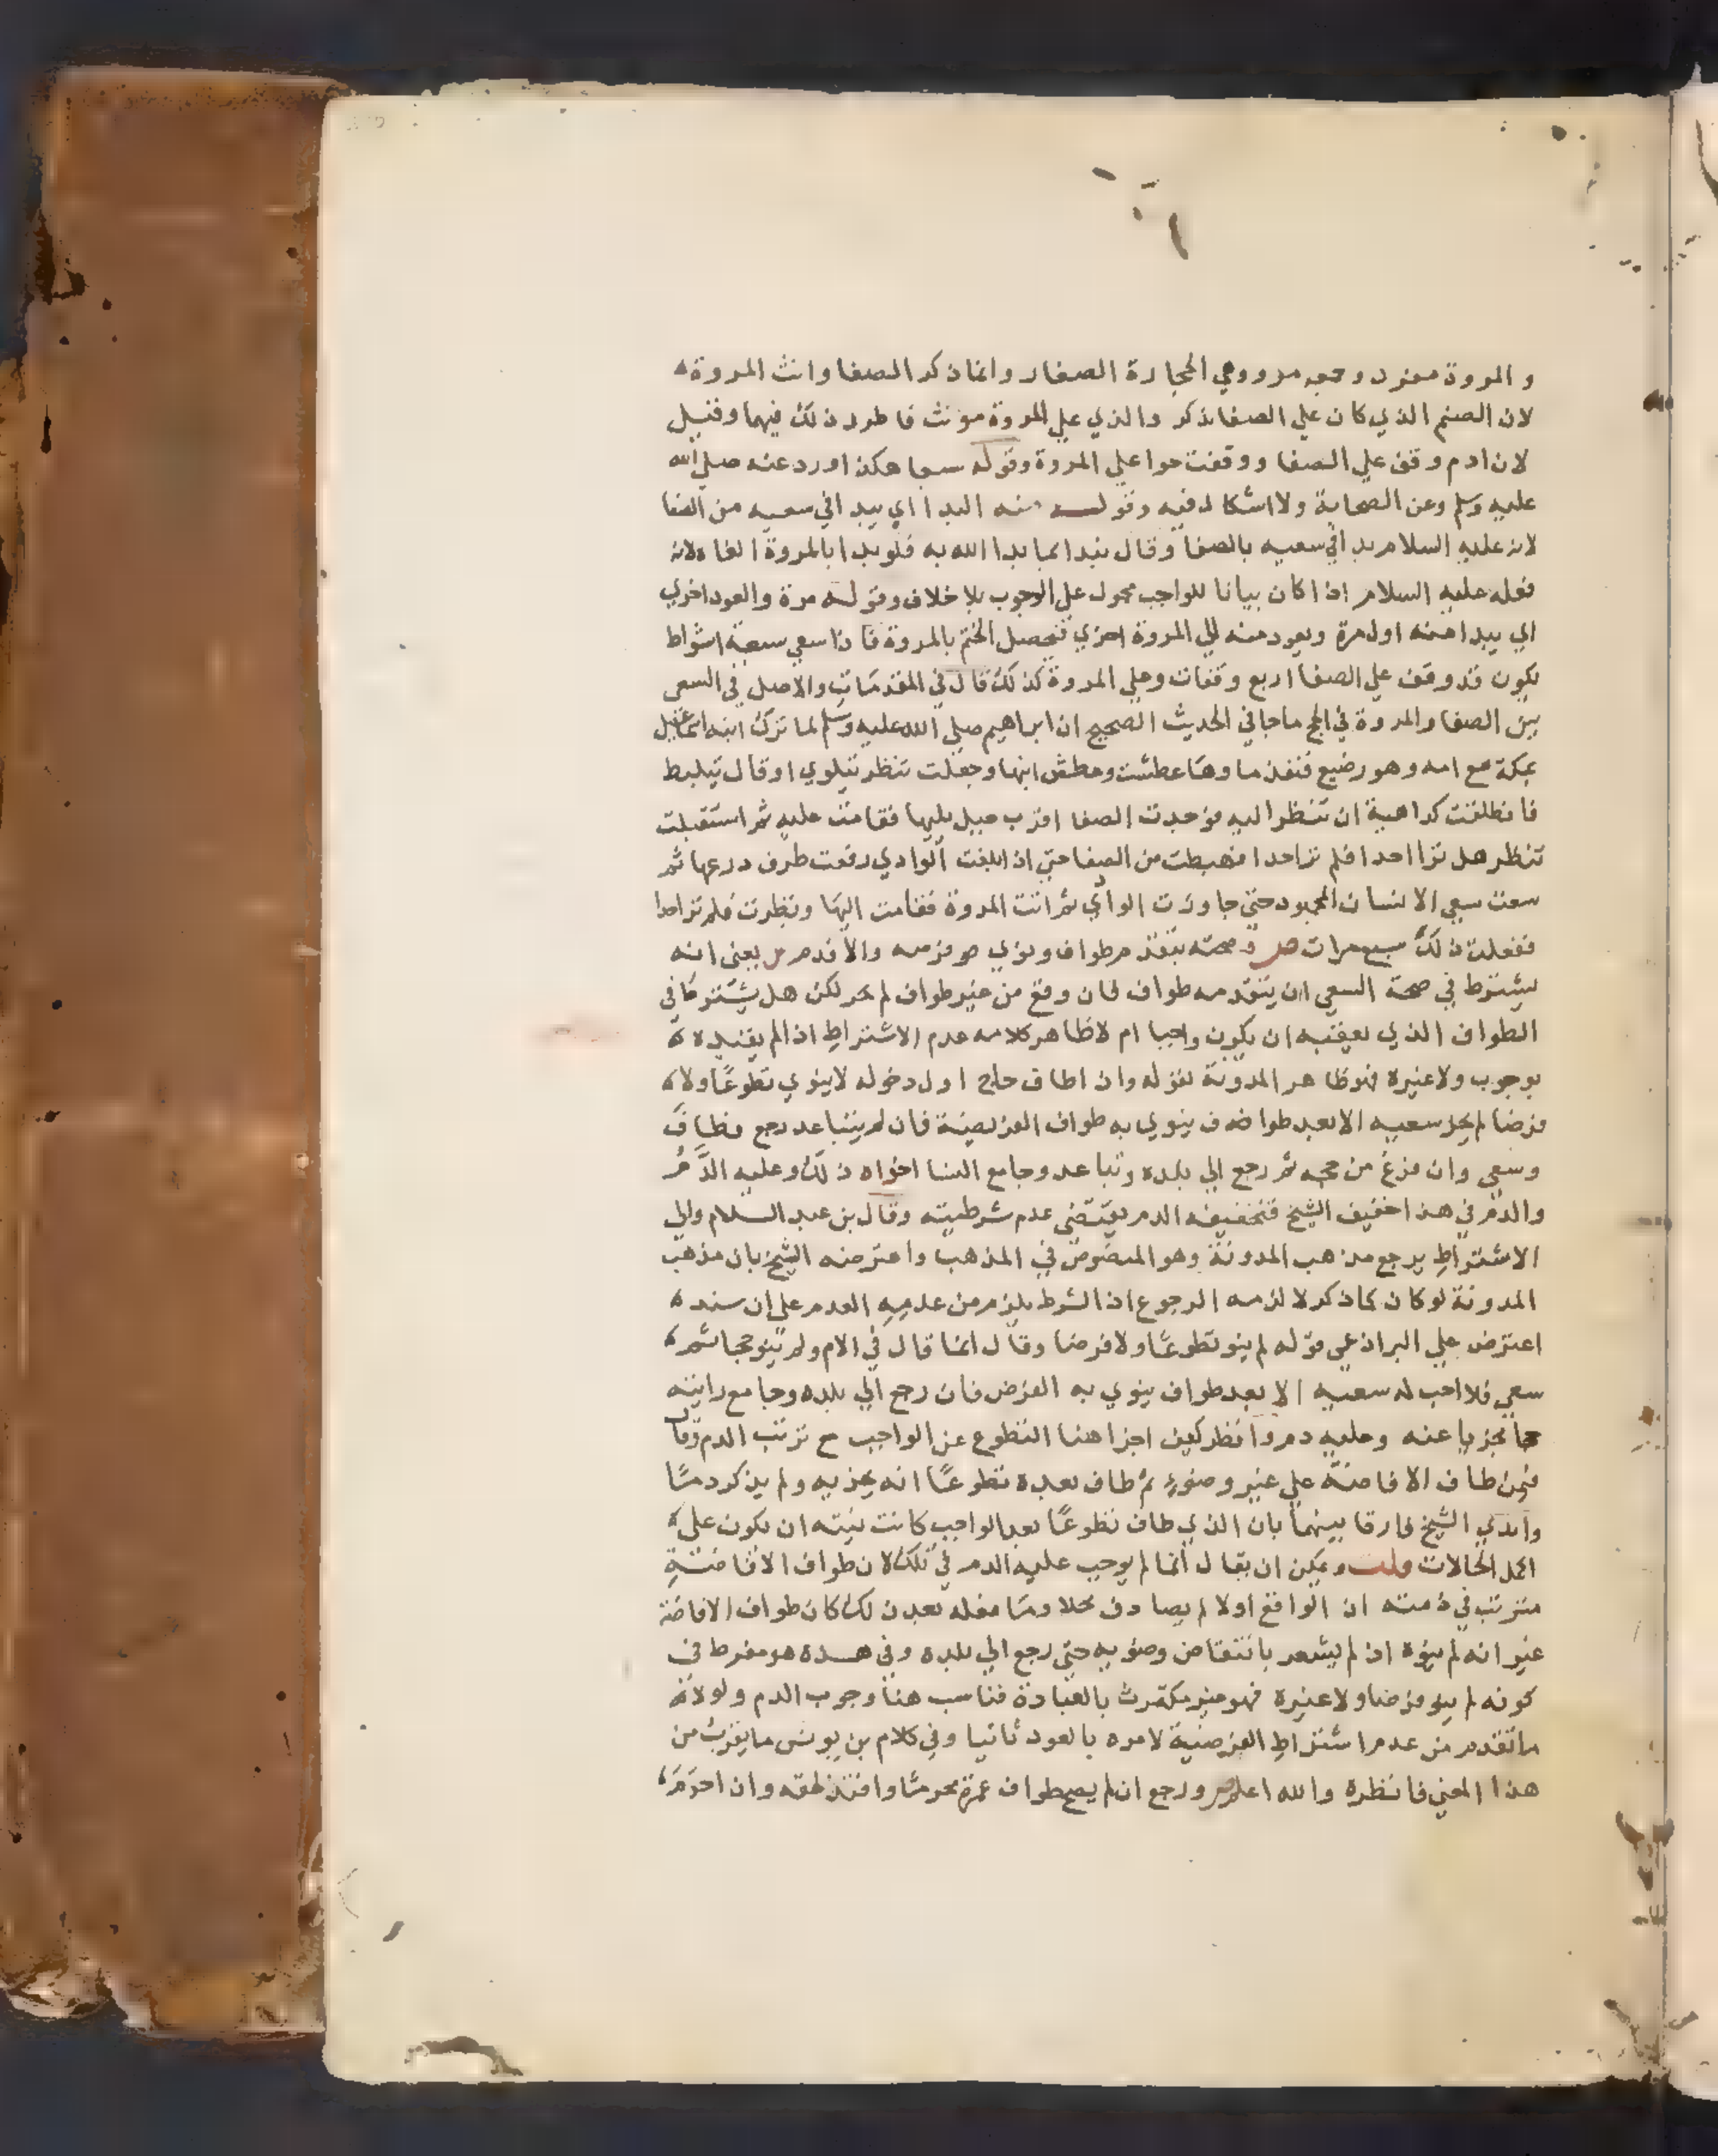 و المروة مفرد وجمعه مرو وهي الحجارة الصغار وانما ذكر الصفا وانث المروة
لان الصنم الذي كان علي الصفا ذكر والذي علي المروة مونث فاطرد ذلك فيهما وقيل
لان ادم وقف علي الصفا ووقفت حوا علي المروة وقوله سبعا هكذا ورد عنه صلي الله
عليه وسلم وعن الصحابة ولا اشكال فيه وقوله منه البدا اي يبدا في سعيه من الصفا
لانه عليه السلام بدا في سعيه بالصفا وقال نبدا بما بدا الله به فلو بدا بالمروة الغاه لان
فعله عليه السلام اذا كان بيانا للواجب محمول علي الوجوب بلا خلاف وقوله مرة والعود اخري
اي يبدا منه اول مرة ويعود منه الي المروة اخري فيحصل الختم بالمروة فاذا سعي سبعة اشواط
يكون قد وقف علي الصفا اربع وقفات وعلي المروة كذلك قال في المقدمات والاصل في السعي
بين الصفا والمروة في الحج ما جا في الحديث الصحيح ان ابراهيم صلي الله عليه وسلم لما ترك ابنه اسماعيل
بمكة مع امه وهو رضيع فنفذ ماوها عطشت وعطش ابنها وجعلت تنظر يتلوي او قال يتلبط
فانطلقت كراهية ان تنظر اليه فوجدت الصفا اقرب جبل يليها فقامت عليه ثم استقبلت
تنظر هل تراا احدا فلم تراحدا فهبطت من الصفا حتي اذا بلغت الوادي رفعت طرف درعها ثم
سعت سعي الانسان المجهود حتي جاوزت الوادي ثم اتت المروة فقامت اليها ونظرت فلم تر احدا
ففعلت ذلك سبع مرات ص وصحته بتقدم طواف ونوي فرضيه والا فدم ش يعني انه
يشترط في صحة السعي ان يتقدمه طواف فان وقع من غير طواف لم يجز لكن هل يشترط في
الطواف الذي يعقبه ان يكون واجبا ام لا ظاهر كلامه عدم الاشتراط اذ لم يقيده
بوجوب ولا غيره وهو ظاهر المدونة لقوله وان اطاف حاج اول دخوله لا ينوي تطوعًا ولا
فرضا لم يجز سعيه الا بعد طوافه ف ينوي به طواف الفريضية فان لم يتباعد رجع فطاف
وسعي وان فرغ من حجه ثم رجع الي بلده وتباعد وجامع النسا اجزاه ذلك وعليه الدَّم
والدم في هذا خفيف الشيخ فتخفيفه الدم يقتضي عدم شرطيته وقال بن عبد السلام والي
الاشتراط يرجع مذهب المدونة وهو المنصوص في المذهب واعترضه الشيخ بان مذهب
المدونة لو كان كما ذكر لا لزمه الرجوع اذ الشرط يلزم من عدمه العدم علي ان سند
اعترض علي البراذعي قوله لم ينو تطوعًا ولا فرضا وقال انما قال في الام ولم ينو حجا ثم
سعي فلا احب له سعيه الا بعد طواف ينوي به الفرض فان رجع الي بلده وجامع رايته
مجزيا عنه وعليه دم وانظر كيف اجزا هنا التطوع عن الواجب مع ترتب الدم وقال
فيمن طاف الافاضة علي غير وضوءٍ ثم طاف بعده تطوعًا انه يجزيه ولم يذكر دمًا
وابدي الشيخ فارقا بينهما بان الذي طاف تطوعًا بعد الواجب كانت نيته ان يكون علي
اكمل الحالات قلت ويمكن ان يقال انما لم يوجب عليه الدم في تلك لان طواف الافاضةِ
مترتب في ذمته اذ الواقع اولا لم يصادف محلا وما فعله بعد ذلك كان طواف الافاضة
غير انه لم ينوه اذ لم يشعر بانتقاض وضويه حتي رجع الي بلده وفي هذه هو مفرط في
كونه لم ينو فرضا ولا غيره فهو غير مكترث بالعبادة فناسب هنا وجوب الدم ولولا
ما تقدم من عدم اشتراط الفرضية لامره بالعود ثانيا وفي كلام بن يونس ما يقرب من
هذا المعني فانظره والله اعلم ص ورجع ان لم يصح طواف عمرة محرمًا وافتدي لحلقه وان احرَمَ